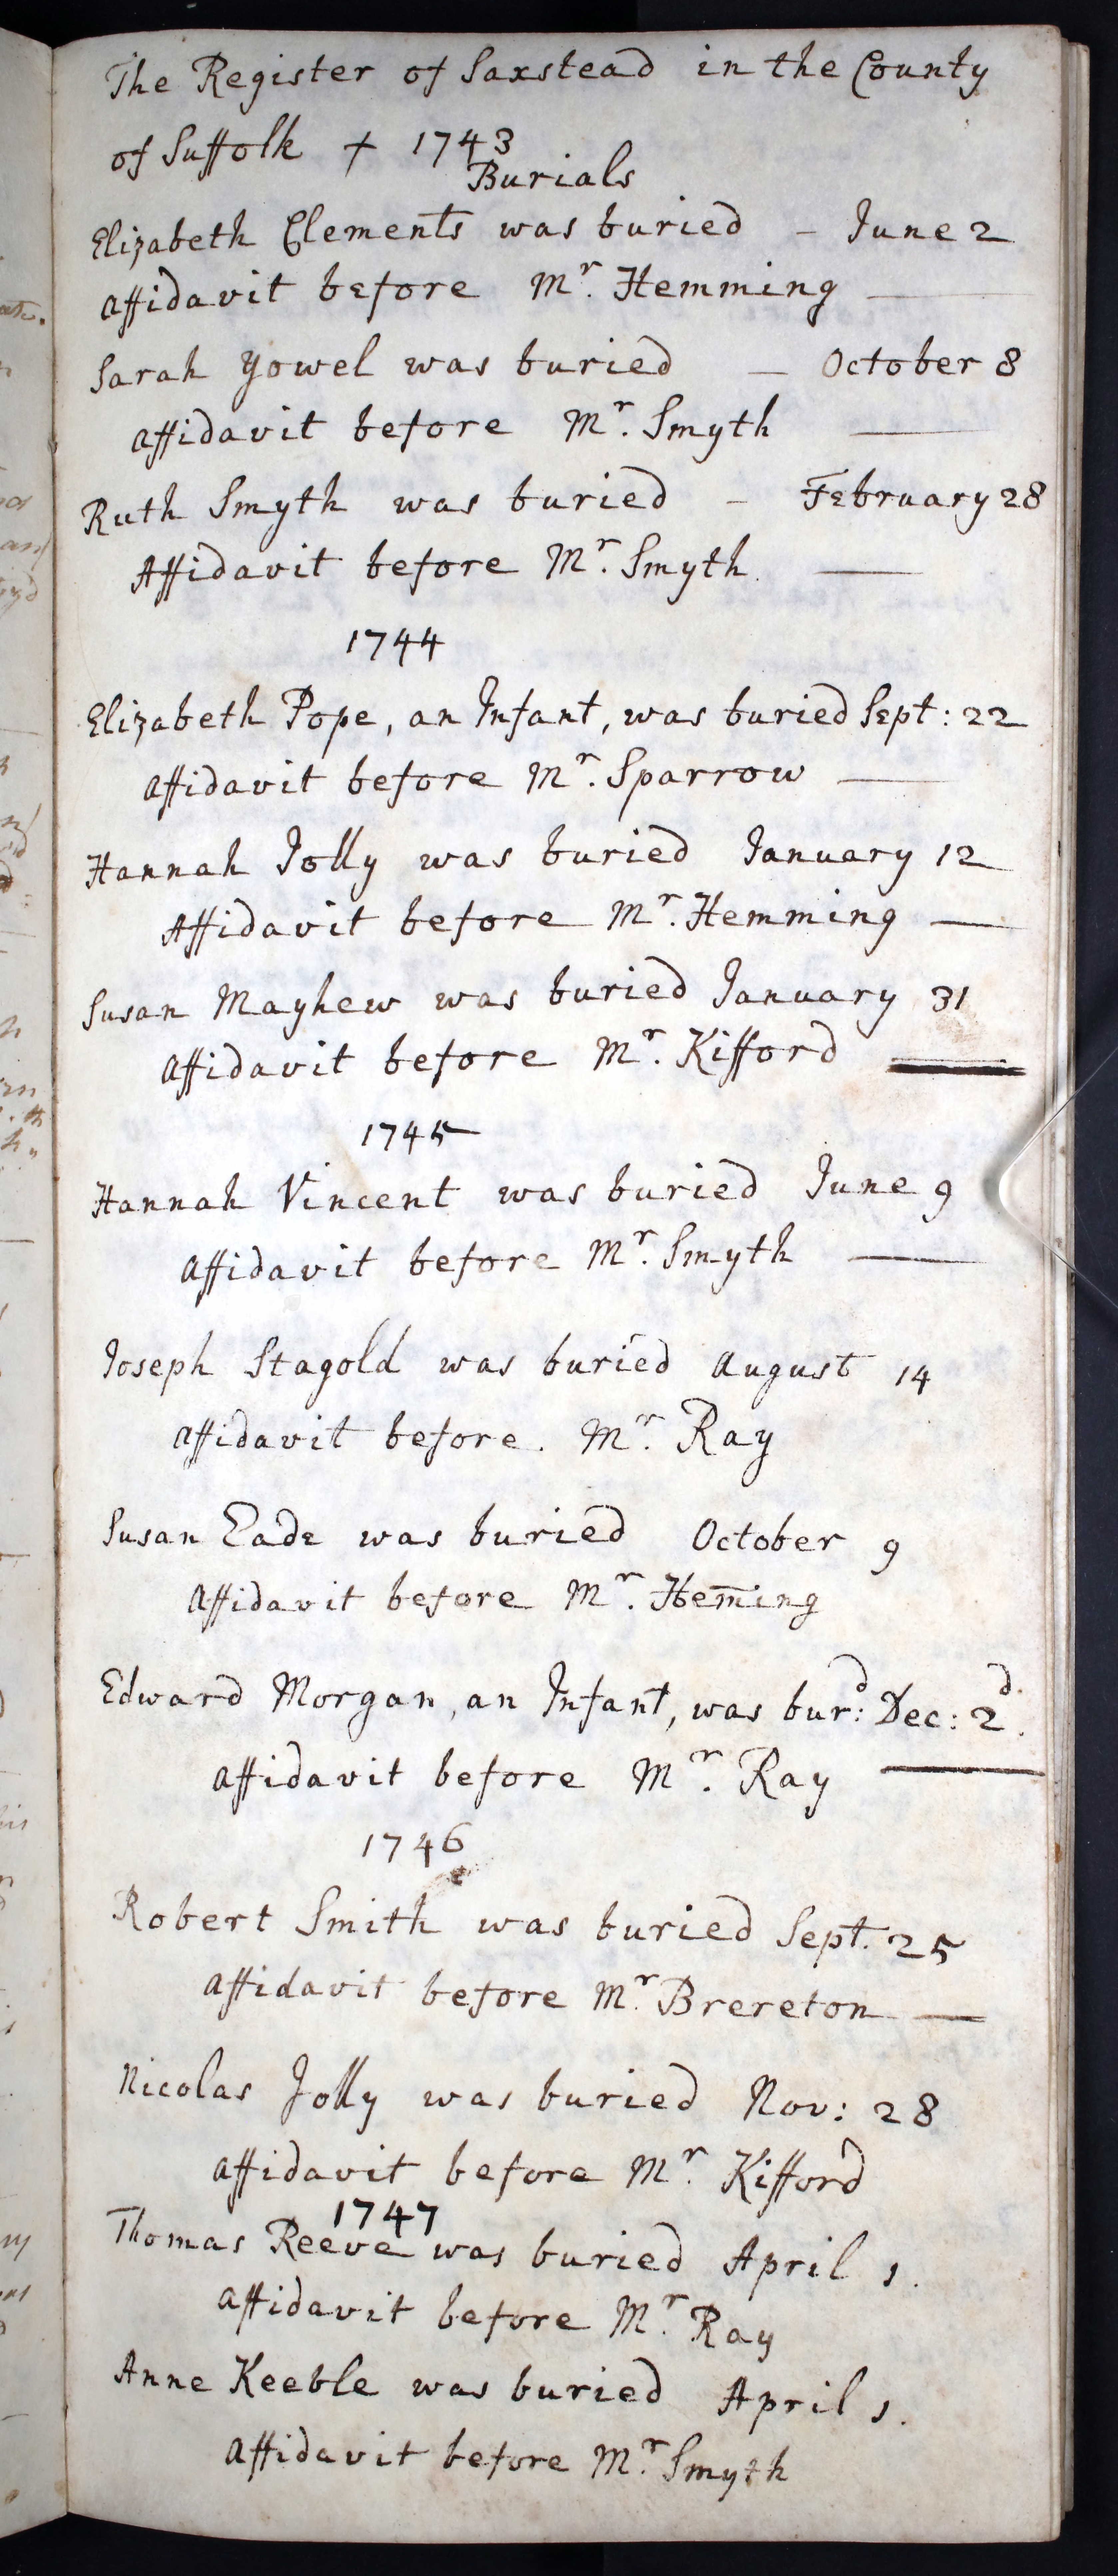 The Register of Saxstead in the County
of Suffolk + 1743
Burials
Elizabeth Clements was buried - June 2
Affidavit before Mr. Hemming
Sarah Yowel was buried - October 8
Affidavit before Mr. Smyth
Ruth Smyth was buried - February 28
Affidavit before Mr. Smyth.
1744
Elizabeth Pope, an Infant, was buried Sept: 22
Affidavit before Mr. Sparrow
Hannah Jolly was buried January 12
Affidavit before Mr. Hemming
Susan Mayhew was buried January 31
Affidavit before Mr. Kifford
1745
Hannah Vincent was buried June 9
Affidavit before Mr. Smyth
Joseph Stagold was buried August 14
Affidavit before. Mr. Ray
Susan Eade was buried October 9
Affidavit before Mr. Hem̄ing
Edward Morgan, an Infant, was bur:d Dec: 2d.
Affidavit before Mr. Ray
1746
Robert Smith was buried Sept. 25
Affidavit before Mr. Brereton
Nicolas Jolly was buried Nov: 28
Affidavit before Mr. Kifford
1747
Thomas Reeve was buried April 1.
Affidavit before Mr. Ray
Anne Keeble was buried April 1.
Affidavit before Mr. Smyth